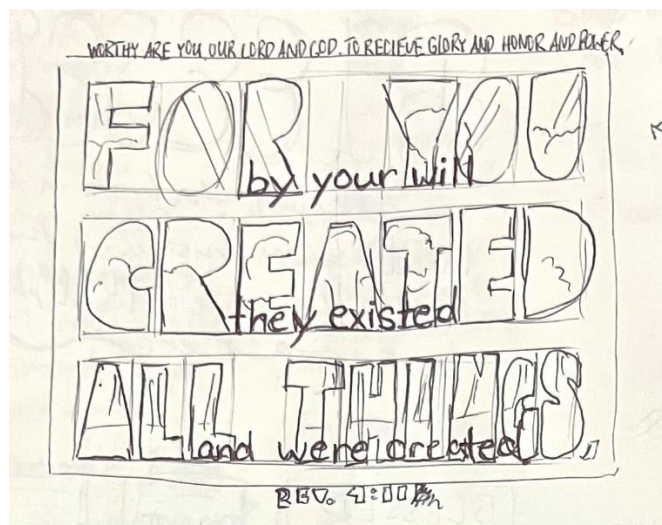 WORTHY ARE YOU, OUR LORD AND GOD, TO RECIEVE GLORY AND HONOR AND POWER,
FOR YOU
by your will
CREATED
they existed
ALL THINGS,
and were created
REV. 4:11